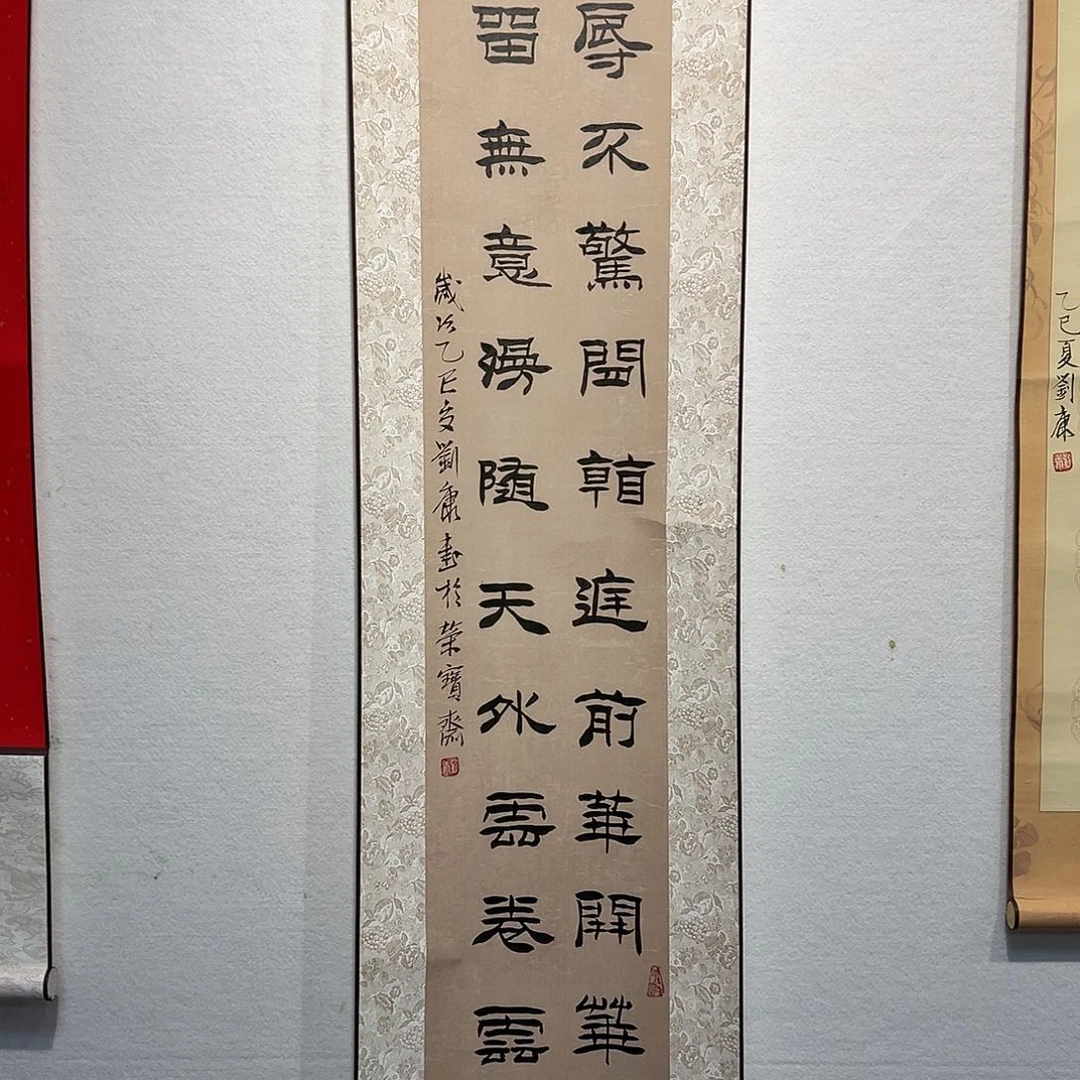 乙巳夏劉康
辱不驚閒看庭前華開華
留無意漫随天外雲卷雲
歲次乙巳夏劉康書於榮寶齋